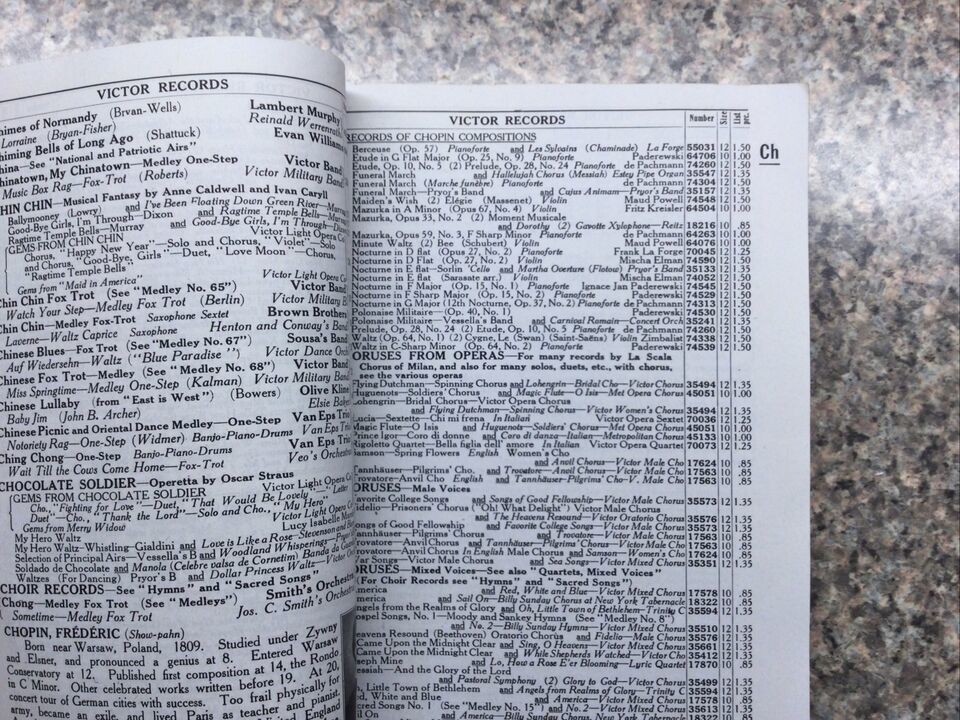 VICTOR RECORDS
of Normandy (Bryan-Wells) Lambert Murphy
Lorraine (Bryan-Fisher) Reinald
Bells of Long Ago (Shattuck) Evan
See "National and Patriotic Airs"
My Chinatown—Medley One-Step Victor Band
Music Box Rag—Fox-Trot (Roberts) Victor Military
CHIN—Musical Fantasy by Anne Caldwell and Ivan Caryll
Ballymooney (Lowry) and I've Been Floating Down Green River—Murray
Good-Bye Girls, I'm Through—Dixon and Ragtime Temple Bells—Murray
Ragtime Temple Bells—Murray and Good-Bye Girls, I'm Through—
(GEMS FROM CHIN CHIN Victor Light
Chorus, "Happy New Year"—Solo and Chorus, "Violet"—Solo
and Chorus, "Good-Bye, Girls"—Duet, "Love Moon"—Chorus,
"Ragtime Temple Bells"
Gems from "Maid in America" Victor Light Opera
Chin Chin Fox Trot (See "Medley No. 65") Victor Band
Watch Your Step—Medley Fox Trot (Berlin) Victor Military
Chin Chin—Medley Fox-Trot Saxophone Sextet Brown Brothers
Lacerne—Waltz Caprice Saxophone Henton and Conway's Band
Chinese Blues—Fox Trot (See "Medley No. 67") Sousa's Band
Auf Wiedersehn—Waltz ("Blue Paradise") Victor Dance
Chinese Fox Trot—Medley (See "Medley No. 68") Victor Band
Miss Springtime—Medley One-Step (Kalman) Victor Military Band
Chinese Lullaby (from "East is West") (Bowers) Olive Kline
Baby Jim (John B. Archer) Elsie Baker
Chinese Picnic and Oriental Dance Medley—One-Step Van Eps Trio
Notoriety Rag—One-Step (Widmer) Banjo-Piano-Drums Van Eps Trio
Ching Chong—One-Step Banjo-Piano-Drums Van Eps Trio
Wait Till the Cows Come Home—Fox-Trot Veo's Orchestra
CHOCOLATE SOLDIER—Operetta by Oscar Straus
(GEMS FROM CHOCOLATE SOLDIER Victor Light Opera
Cho., "Fighting for Love"—Duet, "That Would Be Lovely"
Duet—Cho., "Thank the Lord"—Solo and Cho., "My Hero"
Gems from Merry Widow Victor Light Opera
My Hero Waltz Lucy Isabelle
My Hero Waltz-Whistling—Gialdini and Love is Like a Rose—
Selection of Principal Airs—Vessella's B and Woodland Whisperings—Pryor's
Soldado de Chocolate and Manola (Celebre valsa de Cornetim) Banda da
Waltzes (For Dancing) Pryor's B and Dollar Princess Waltz—Victor
CHOIR RECORDS—See "Hymns" and "Sacred Songs"
Chong—Medley Fox Trot (See "Medleys") Smith's Orchestra
Sometime—Medley Fox Trot Jos. C. Smith's Orchestra
CHOPIN, FRÉDÉRIC (Show-pahn)
Born near Warsaw, Poland, 1809. Studied under Zywny
and Elsner, and pronounced a genius at 8. Entered Warsaw
Conservatory at 12. Published first composition at 14, the Rondo
in C Minor. Other celebrated works written before 19. At 20,
concert tour of German cities with success. Too frail physically for
army, became an exile, and lived Paris as teacher and pianist.
England
VICTOR RECORDS Number Size List pr.
RECORDS OF CHOPIN COMPOSITIONS
Berceuse (Op. 57) Pianoforte and Les Sylvains (Chaminade) La Forge 55031 12 1.50
Etude in G Flat Major (Op. 25, No. 9) Pianoforte Paderewski 64706 10 1.00
Etude, Op. 10, No. 5 (2) Prelude, Op. 28, No. 24 Pianoforte de Pachmann 74260 12 1.50
Funeral March and Hallelujah Chorus (Messiah) Estey Pipe Organ 35547 12 1.35
Funeral March (Marche funèbre) Pianoforte de Pachmann 74304 12 1.50
Funeral March—Pryor's Band and Cujus Animam—Pryor's Band 35157 12 1.35
Maiden's Wish (2) Élégie (Massenet) Violin Maud Powell 74548 12 1.50
Mazurka in A Minor (Opus 67, No. 4) Violin Fritz Kreisler 64504 10 1.00
Mazurka, Opus 33, No. 2 (2) Moment Musicale
and Dorothy (2) Gavotte Xylophone—Reitz 18216 10 .85
Mazurka, Opus 59, No. 3, F Sharp Minor Pianoforte de Pachmann 64263 10 1.00
Minute Waltz (2) Bee (Schubert) Violin Maud Powell 64076 10 1.00
Nocturne in D flat (Opus 27, No. 2) Pianoforte Frank La Forge 70045 12 1.25
Nocturne in D Flat (Op. 27, No. 2) Violin Mischa Elman 74590 12 1.50
Nocturne in E flat—Sorlin 'Cello and Martha Overture (Flotow) Pryor's Band 35133 12 1.35
Nocturne in E flat (Sarasate arr.) Violin Mischa Elman 74052 12 1.50
Nocturne in F Major (Op. 15, No. 1) Pianoforte Ignace Jan Paderewski 74545 12 1.50
Nocturne in F Sharp Major (Op. 15, No. 2) Pianoforte Paderewski 74529 12 1.50
Nocturne in G Major (12th Nocturne, Op. 37, No. 2) Pianoforte de Pachmann 74313 12 1.50
Polonaise Militaire—(Op. 40, No. 1) Paderewski 74530 12 1.50
Polonaise Militaire—Vessella's Band and Carnival Romain—Concert Orch 35241 12 1.35
Prelude, Op. 28, No. 24 (2) Etude, Op. 10, No. 5 Pianoforte de Pachmann 74260 12 1.50
Waltz (Op. 64, No. 1) (2) Cygne, Le (Swan) (Saint-Saëns) Violin Zimbalist 74338 12 1.50
Waltz in C-Sharp Minor (Op. 64, No. 2) Paderewski 74539 12 1.50
ORUSES FROM OPERAS—For many records by La Scala
Chorus of Milan, and also for many solos, duets, etc., with chorus,
see the various operas
Flying Dutchman—Spinning Chorus and Lohengrin-Bridal Cho—Victor Chorus 35494 12 1.35
Huguenots—Soldiers' Chorus and Magic Flute—O Isis—Met Opera Chorus 45051 10 1.00
Lohengrin—Bridal Chorus—Victor Chorus
and Flying Dutchman—Spinning Chorus—Victor Women's Chorus 35494 12 1.35
Lucia—Sextette—Chi mi frena In Italian Victor Opera Sextet 70036 12 1.25
Magic Flute—O Isis and Huguenots—Soldiers' Chorus—Met Opera Chorus 45051 10 1.00
Prince Igor—Coro di donne and Coro di danza—Italian—Metropolitan Chorus 45133 10 1.00
Rigoletto Quartet—Bella figlia dell' amore In Italian Victor Opera Quartet 70073 12 1.25
Samson—Spring Flowers English Women's Cho
and Anvil Chorus—Victor Male Cho 17624 10 .85
Tannhäuser—Pilgrims' Cho. and Trovatore—Anvil Chorus—Victor Male Cho 17563 10 .85
Trovatore—Anvil Cho English and Tannhäuser-Pilgrims' Cho-V. Male Cho 17563 10 .85
ORUSES—Male Voices
Favorite College Songs and Songs of Good Fellowship—Victor Male Chorus 35573 12 1.35
Fidelio—Prisoners' Chorus ("Oh! What Delight") Victor Male Chorus
and The Heavens Resound—Victor Oratorio Chorus 35576 12 1.35
Songs of Good Fellowship and Favorite College Songs—Victor Male Chorus 35573 12 1.35
Tannhäuser—Pilgrims' Chorus and Trovatore—Victor Male Chorus 17563 10 .85
Trovatore—Anvil Chorus and Tannhäuser-Pilgrims' Chorus—Victor Male Cho 17563 10 .85
Trovatore—Anvil Chorus In English Male Chorus and Samson—Women's Cho 17624 10 .85
War Songs—Victor Male Chorus and Sea Songs—Victor Male Chorus 35351 12 1.35
ORUSES—Mixed Voices—See also "Quartets, Mixed Voices"
(For Choir Records see "Hymns" and "Sacred Songs")
America and Red, White and Blue—Victor Mixed Chorus 17578 10 .85
America and Sail On—Billy Sunday Chorus of New York Tabernacle 18322 10 .85
Angels from the Realms of Glory and Oh, Little Town of Bethlehem—Trinity C 35594 12 1.35
Gospel Songs, No. 1—Moody and Sankey Hymns (See "Medley No. 8")
and No. 2—Victor Mixed Chorus 35510 12 1.35
Heavens Resound (Beethoven) Oratorio Chorus and Fidelio—Male Chorus 35576 12 1.35
Came Upon the Midnight Clear and Sing, O Heavens—Victor Mixed Chorus 35661 12 1.35
Came Upon the Midnight Clear and While Shepherds Watched—Victor Cho 35412 12 1.35
Joseph Mine and Lo, How a Rose E'er Blooming—Lyric Quartet 17870 10 .85
Messiah—And the Glory of the Lord
and Pastoral Symphony (2) Glory to God—Victor Chorus 35499 12 1.35
Oh, Little Town of Bethlehem and Angels from Realms of Glory—Trinity C 35594 12 1.35
Red, White and Blue and America—Victor Mixed Chorus 17578 10 .85
Sacred Songs No. 1 (See "Medley No. 15") and No. 2—Victor Mixed Chorus 35613 12 1.35
Sail On and America—Billy Sunday Chorus, New York Tabernacle 18322 10 .85
Ch